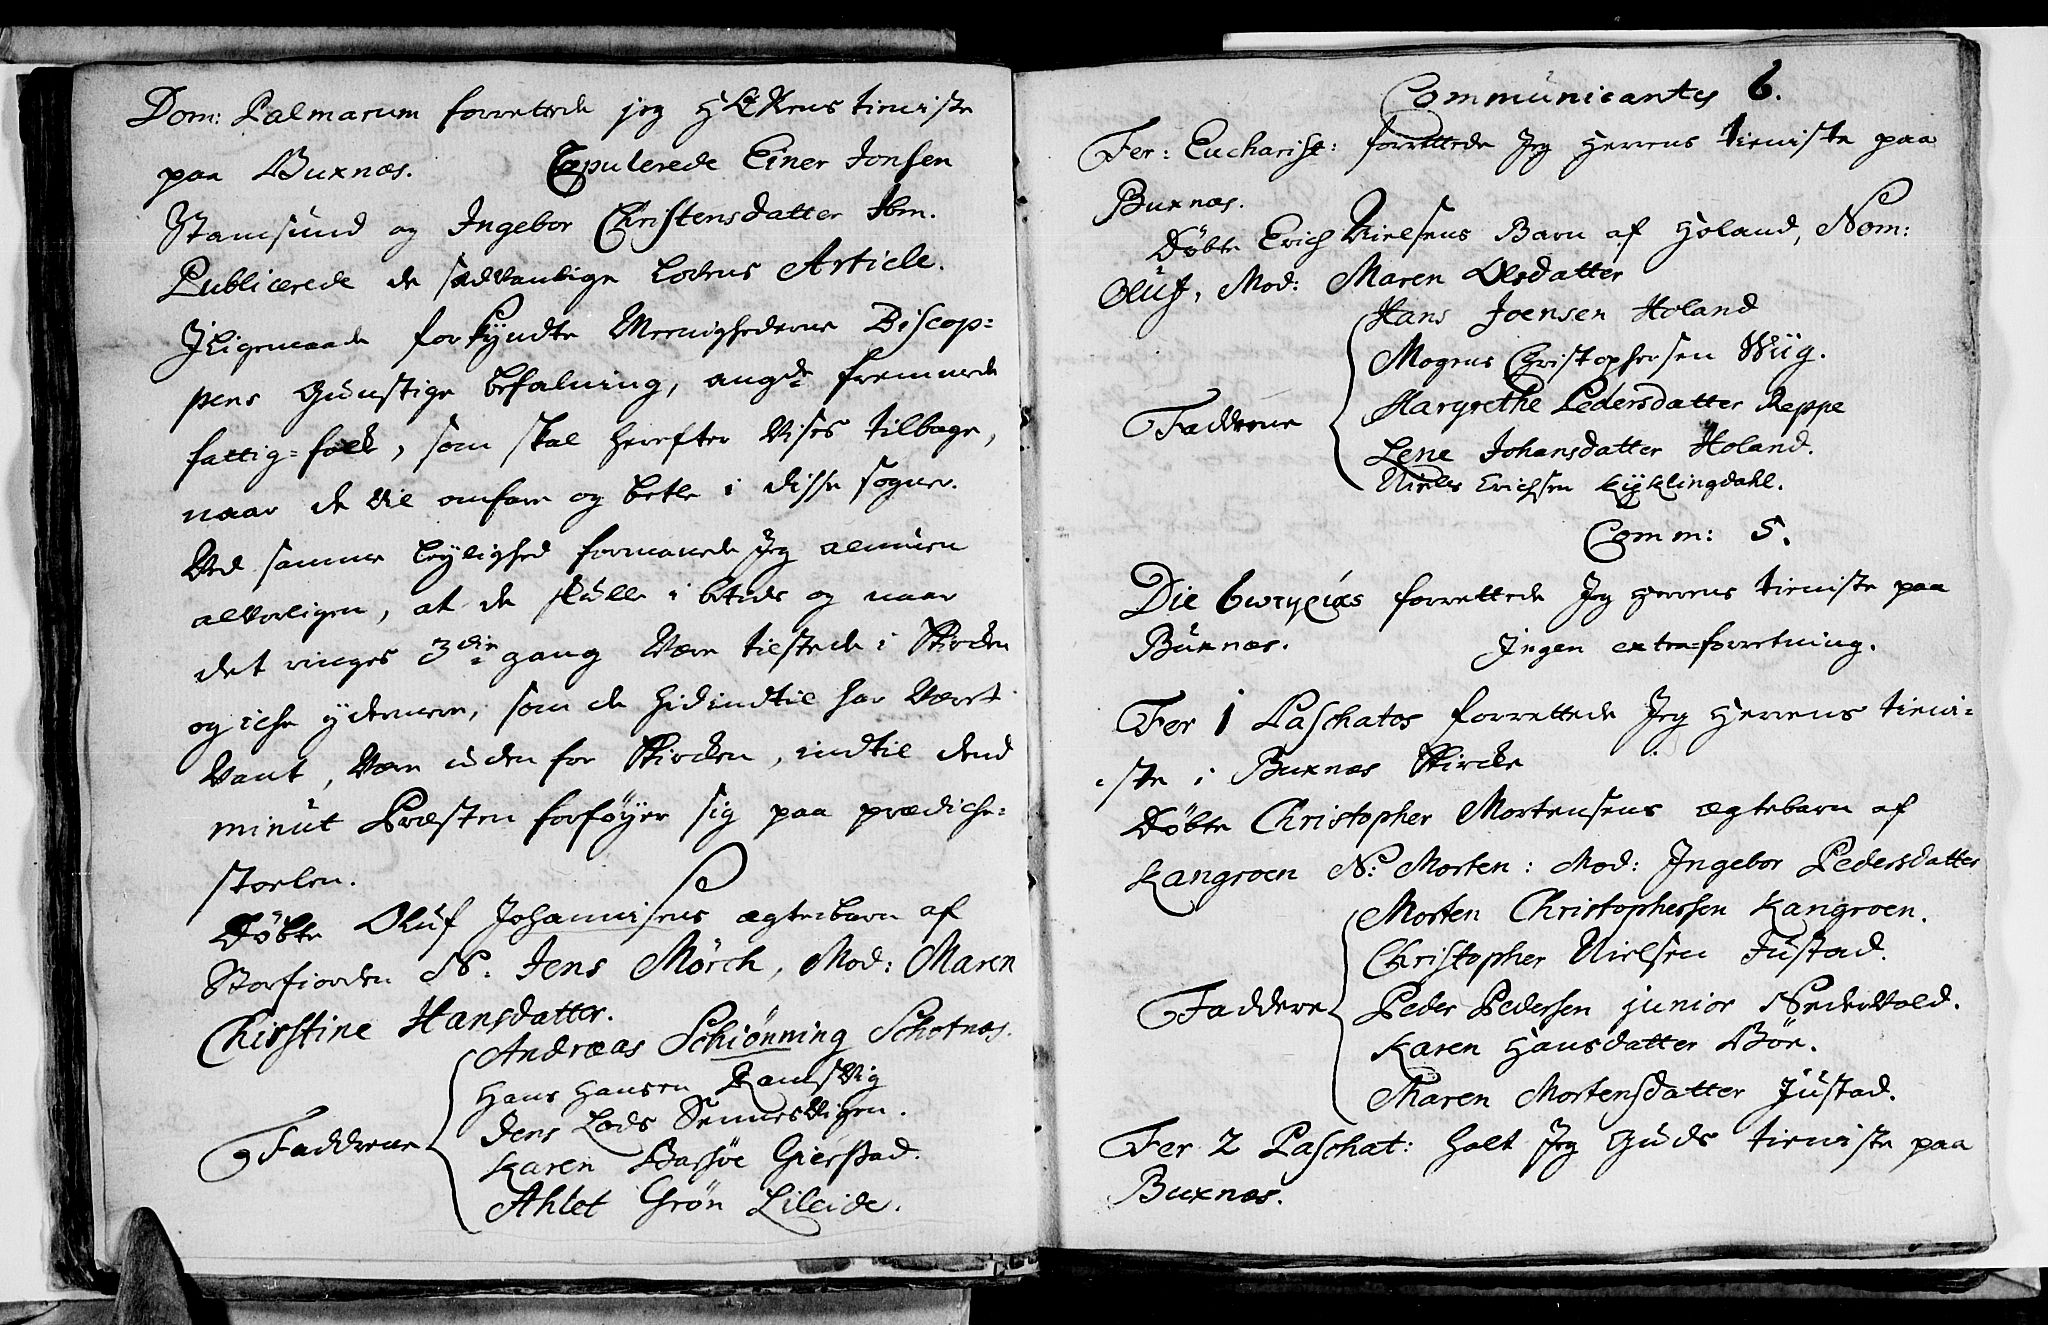 Dom: Palmarum forrettede jeg HERrens tieniste
paa Buxnæs. Copulerede Einer Jonsen
Stamsund og Ingebor Christensdatter Ibm.
Publicerede de sædvanlige Lovens Article.
Jligemaade forkyndte Meenighederne Biscop=
pens Gunstige befalning, angde fremmede
fattig=folck, som skal herefter Vises tilbage,
naar de Vil omfare og betle i disse sogner.
Ved samme Leylighed formanede Jeg almuen
alvorligen, at de skulle i betids og naar
det ringes 3die gang Være tilstede i Kircken
og iche ydermere, som de hidindtil har Været
Vant, Være uden for Kircken, indtil dend
minut Præsten forføyer sig paa prædiche=
stoelen.
Døbte Oluf Johannisens ægtebarn af
Storfiorden N. Jens Mörch, Mod: Maren
Chisstine Hansdatter.
Andreas Schiønning Schotnæs.
Hans Hansen Ramsvig
Jens Lods Sennesvigen.
Fadderne
Karen Bassøe Gierstad.
Ahlet Grön Lileide.
Communicantes 6.
Fer: Eucharist: forrettede Jeg Herrens tieniste paa
Buxnæs.
Døbte Erich Nielsens Barn af Holand, Nom:
Oluf, Mod: Maren Olsdatter
Hans Joensen Holand
Mogens Christophersen Wiig.
Fadderne
Margrethe Pedersdatter Reppe
Lene Johansdatter Holand.
Niels Erichsen Kyklingdahl.
Comm: 5.
Die forrettede Jeg Herrens tieniste paa
Buxnæs. Jngen extra=forretning.
Fer 1 Paschatos forrettede Jeg Herrens tieni=
ste i Buxnæs Kircke
Døbte Christopher Mortensens ægtebarn af
Kangroen N: Morten: Mod: Ingebor Pedersdatter
Morten Christophersen Kangroen.
Christopher Nielsen Justad.
Faddere
Peder Pedersen junior Nedervold.
Karen Hansdatter Böe.
Maren Mortensdatter Justad.
Fer 2 Paschat: holt Jeg Guds tieniste paa
Buxnæs.